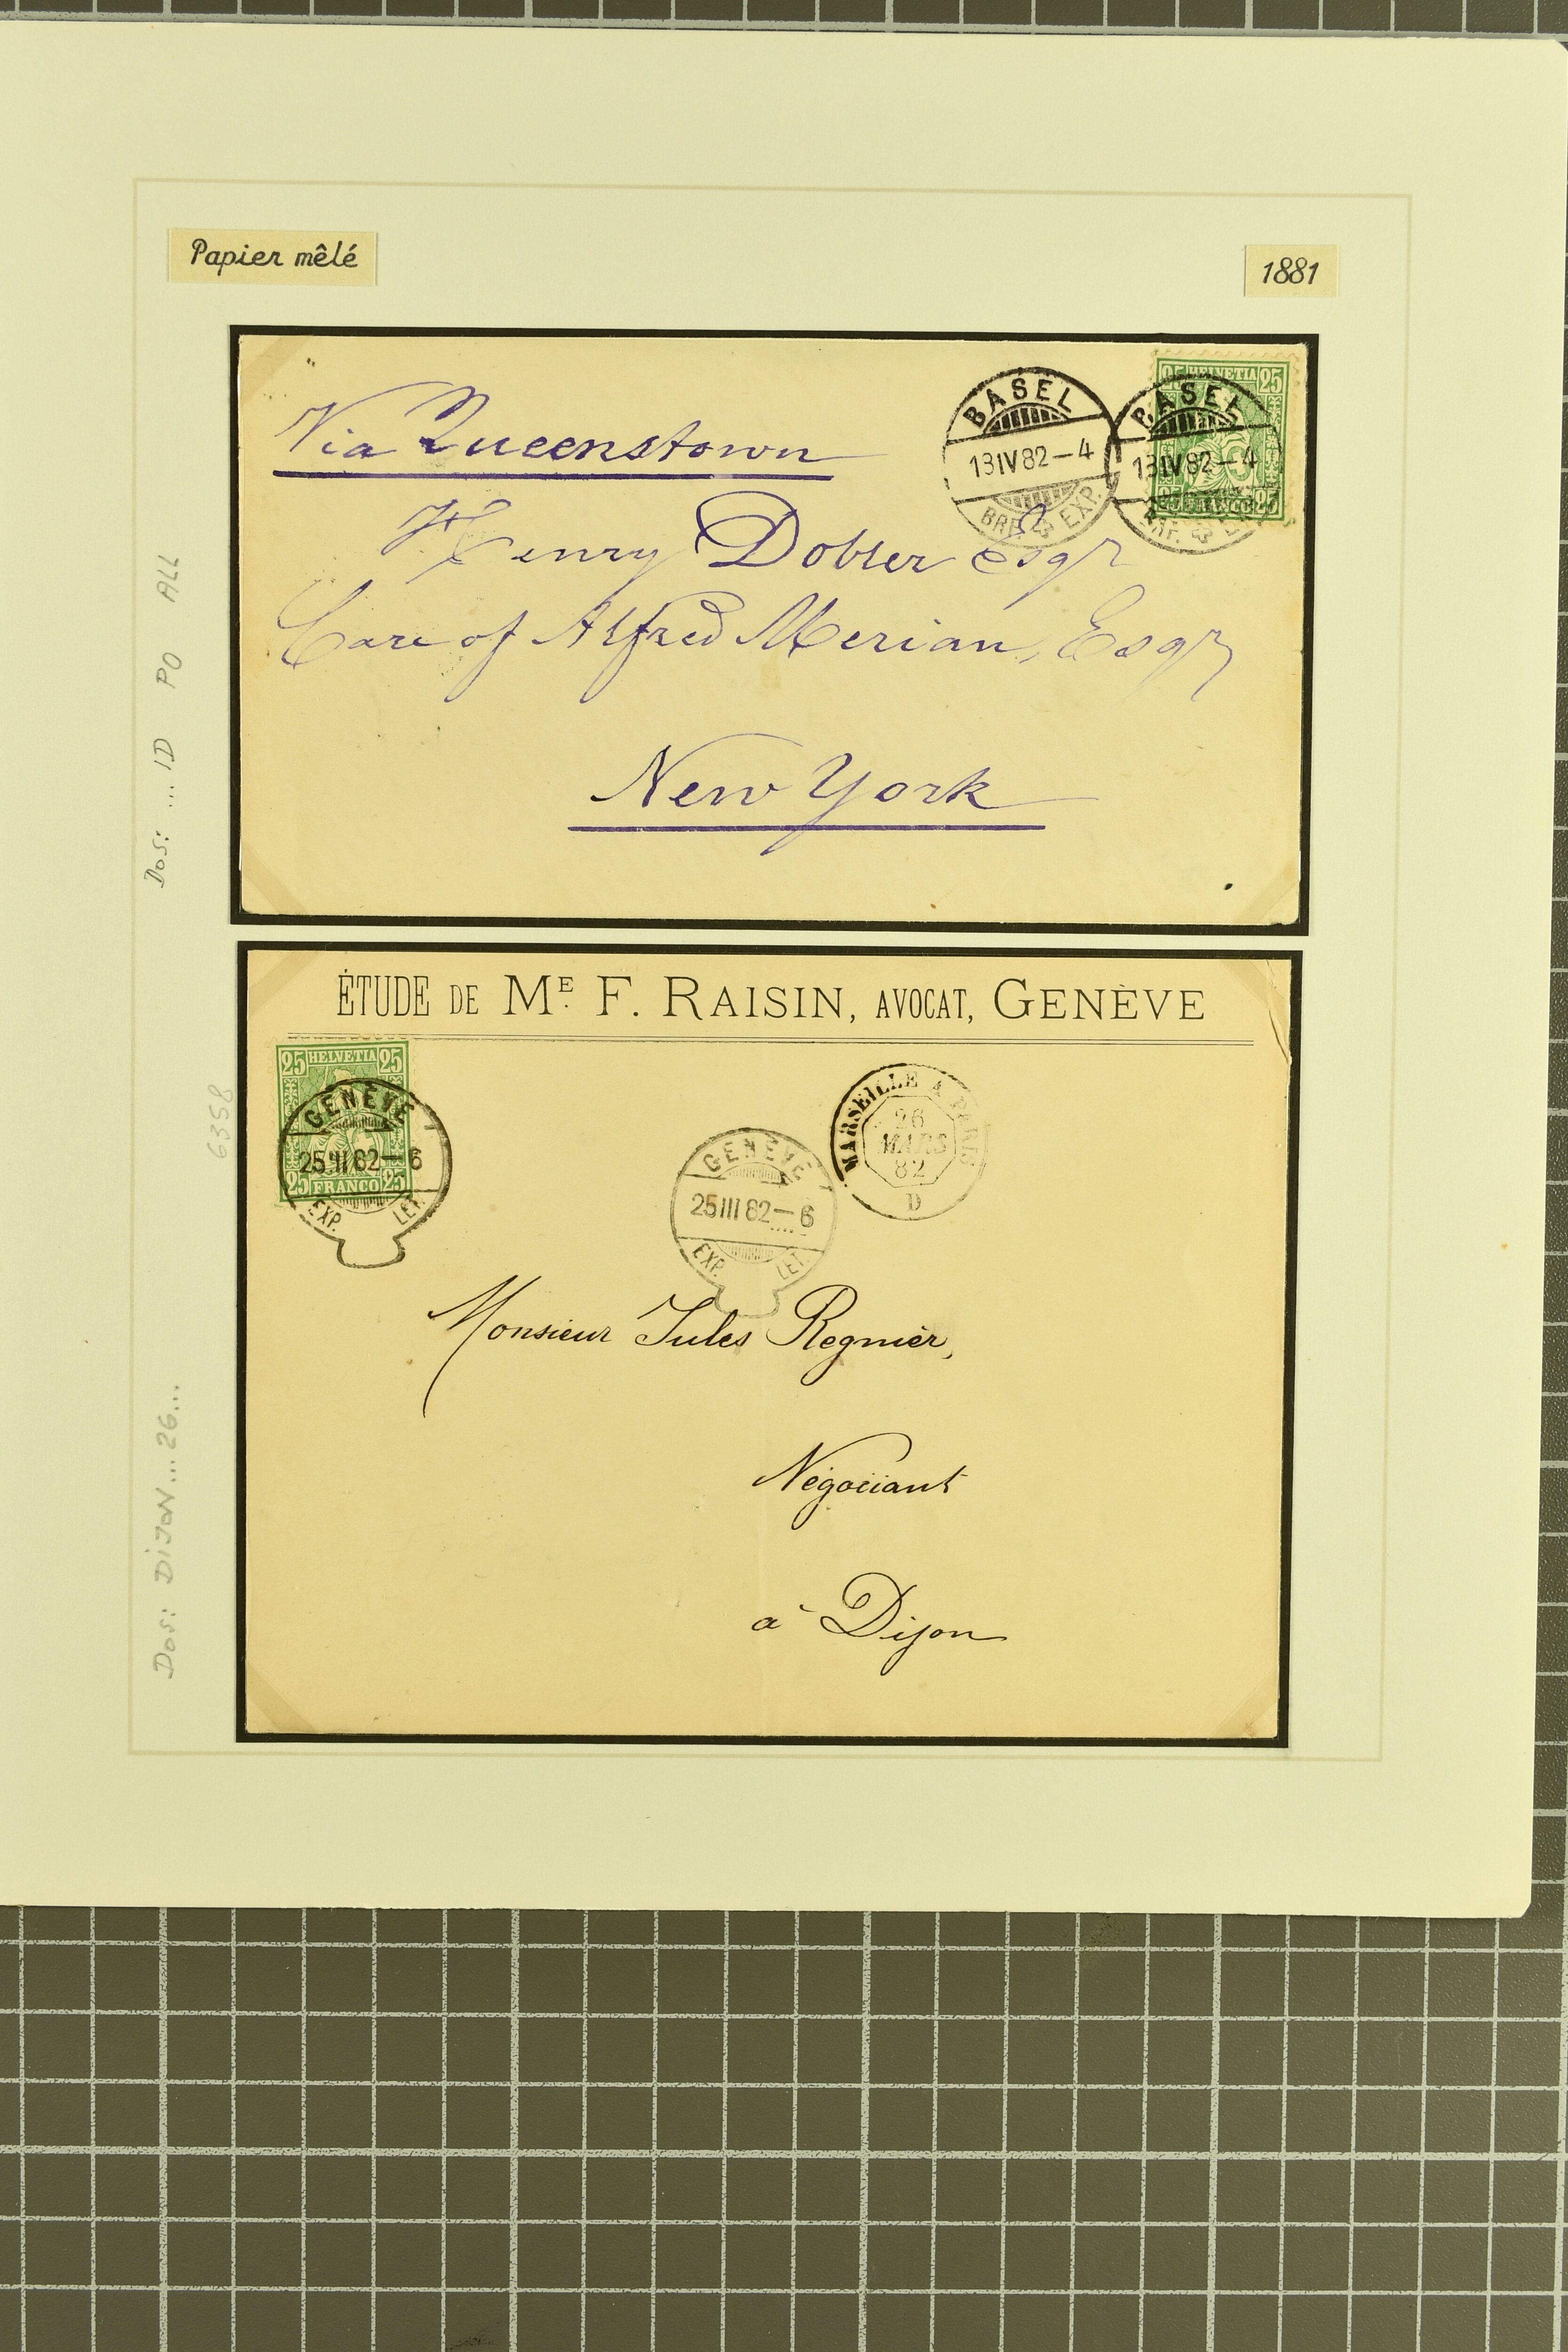 Papier mêlé
1881
Via Queenstown
Henry Dobler Esqr
Care of Alfred Merian, Esqr
New York
BASEL
13IV82-4
BRF. EXP.
BASEL
13IV82-4
BRF. EXP.
25 HELVETIA 25
25 FRANCO 25
Dos: ... ID PO ALL
ÉTUDE DE ME. F. RAISIN, AVOCAT, GENÈVE
25 HELVETIA 25
25 FRANCO 25
GENÈVE
25III82-6
EXP. LET.
GENÈVE
25III82-6
EXP. LET.
MARSEILLE A PARIS
26
MARS
82
D
Monsieur Jules Regnier,
Négociant
à Dijon
6358
Dos: DIJON... 26...